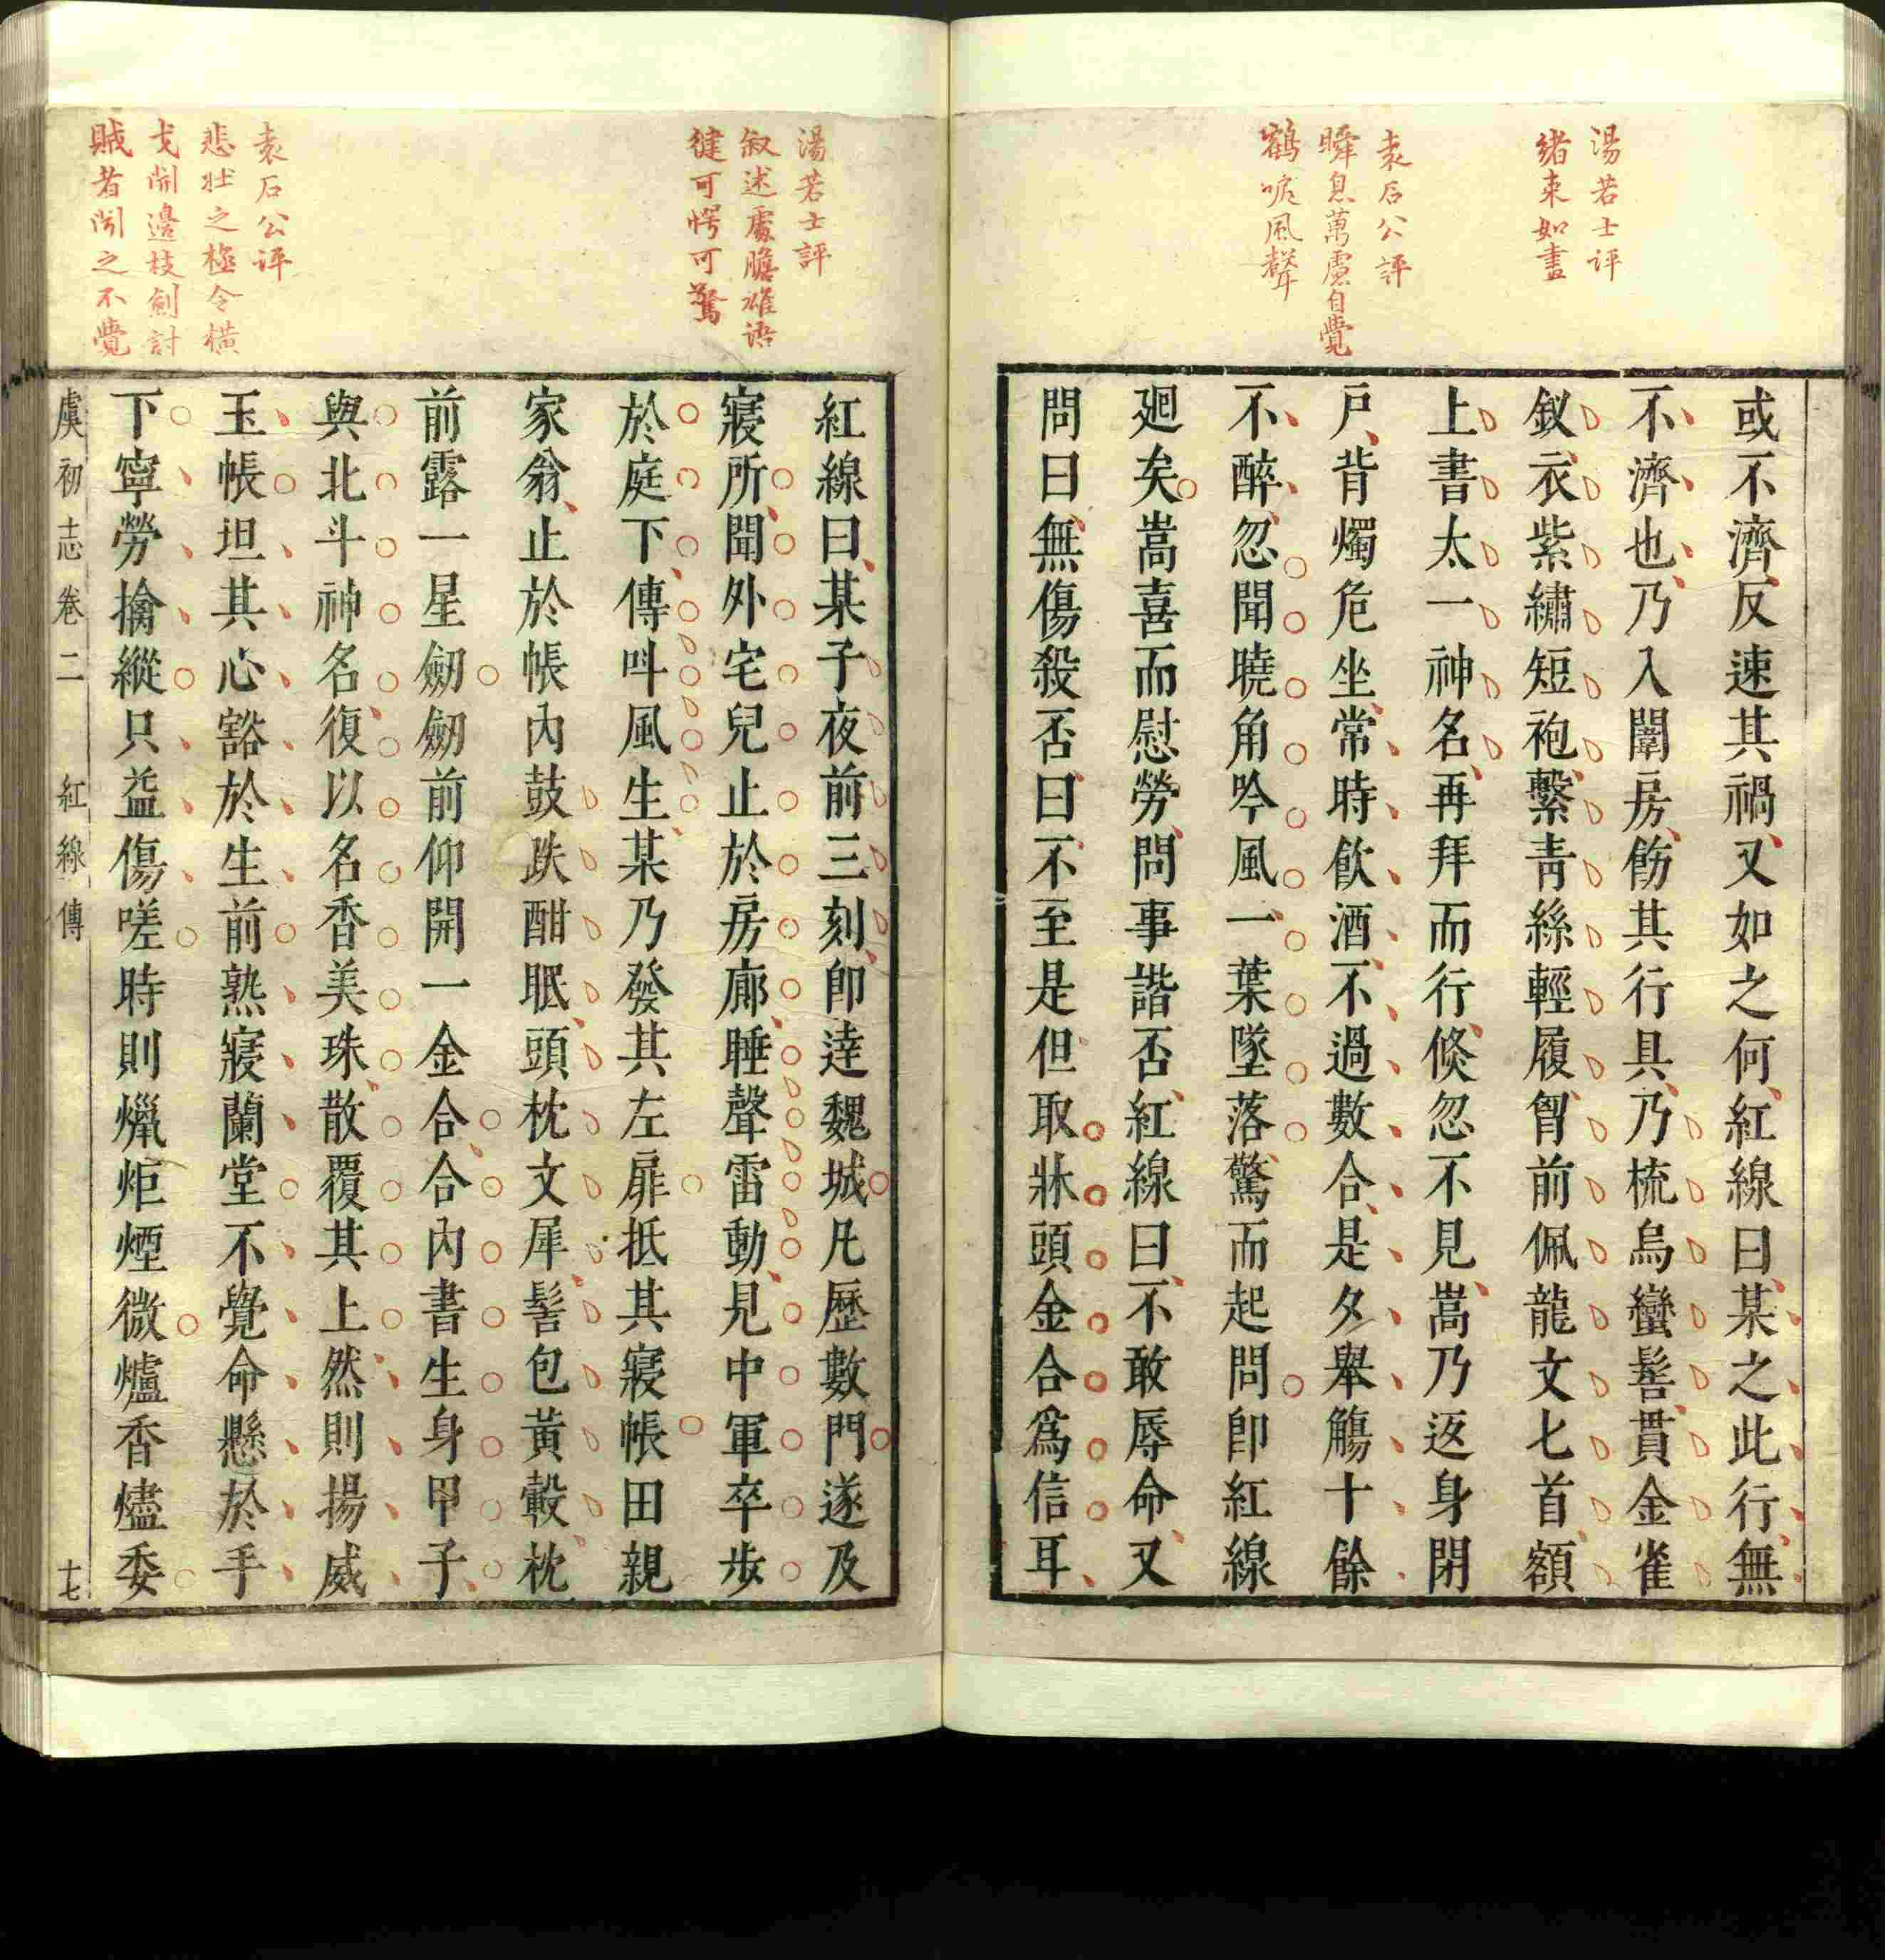 湯若士評
緒束如畫
袁石公評
瞬息萬慮自覺
鶴唳風聲
或不濟反速其禍又如之何紅線曰某之此行無
不濟也乃入闈房飭其行具乃梳烏蠻髻貫金雀
釵衣紫繡短袍繫青絲輕履胷前佩龍文七首額
上書太一神名再拜而行倐忽不見嵩乃返身閉
戶背燭危坐常時飲酒不過數合是夕舉觴十餘
不醉忽聞曉角吟風一葉墜落驚而起問卽紅線
廻矣嵩喜而慰勞問事諧否紅線曰不敢辱命又
問曰無傷殺否曰不至是但取牀頭金合爲信耳
湯若士評
叙述處膽雄語
健可愕可驚
袁石公評
悲壯之極令橫
戈開邊枝劍討
賊者聞之不覺
紅線曰某子夜前三刻卽達魏城凡歷數門遂及
寢所聞外宅兒止於房廊睡聲雷動見中軍卒步
於庭下傳呌風生某乃發其左扉抵其寢帳田親
家翁止於帳內鼓趺酣眠頭枕文犀髻包黃縠枕
前露一星劒劒前仰開一金合合內書生身甲子
與北斗神名復以名香美珠散覆其上然則揚威
玉帳坦其心豁於生前熟寢蘭堂不覺命懸於手
下寧勞擒縱只益傷嗟時則爉炬煙微爐香燼委
虞初志卷二 紅線傳 十七